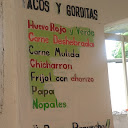 ACOS Y GORDITAS
Huevo Rojo y Verde
Carne Deshebrada
Carne Molida
Chicharron
Frijol con chorizo
Papa
Nopales